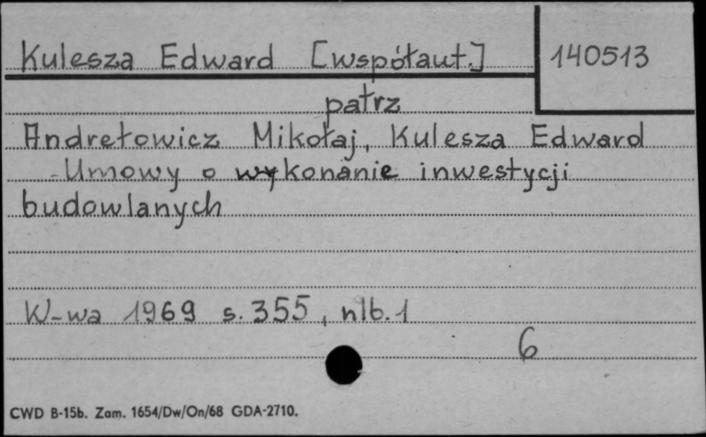 Kulesza Edward [współaut.] 140513
patrz
Andrełowicz Mikołaj, Kulesza Edward
- Umowy o wykonanie inwestycji
budowlanych
W-wa 1969 s. 355, nlb. 1
6
CWD B-15b. Zam. 1654/Dw/On/68 GDA-2710.